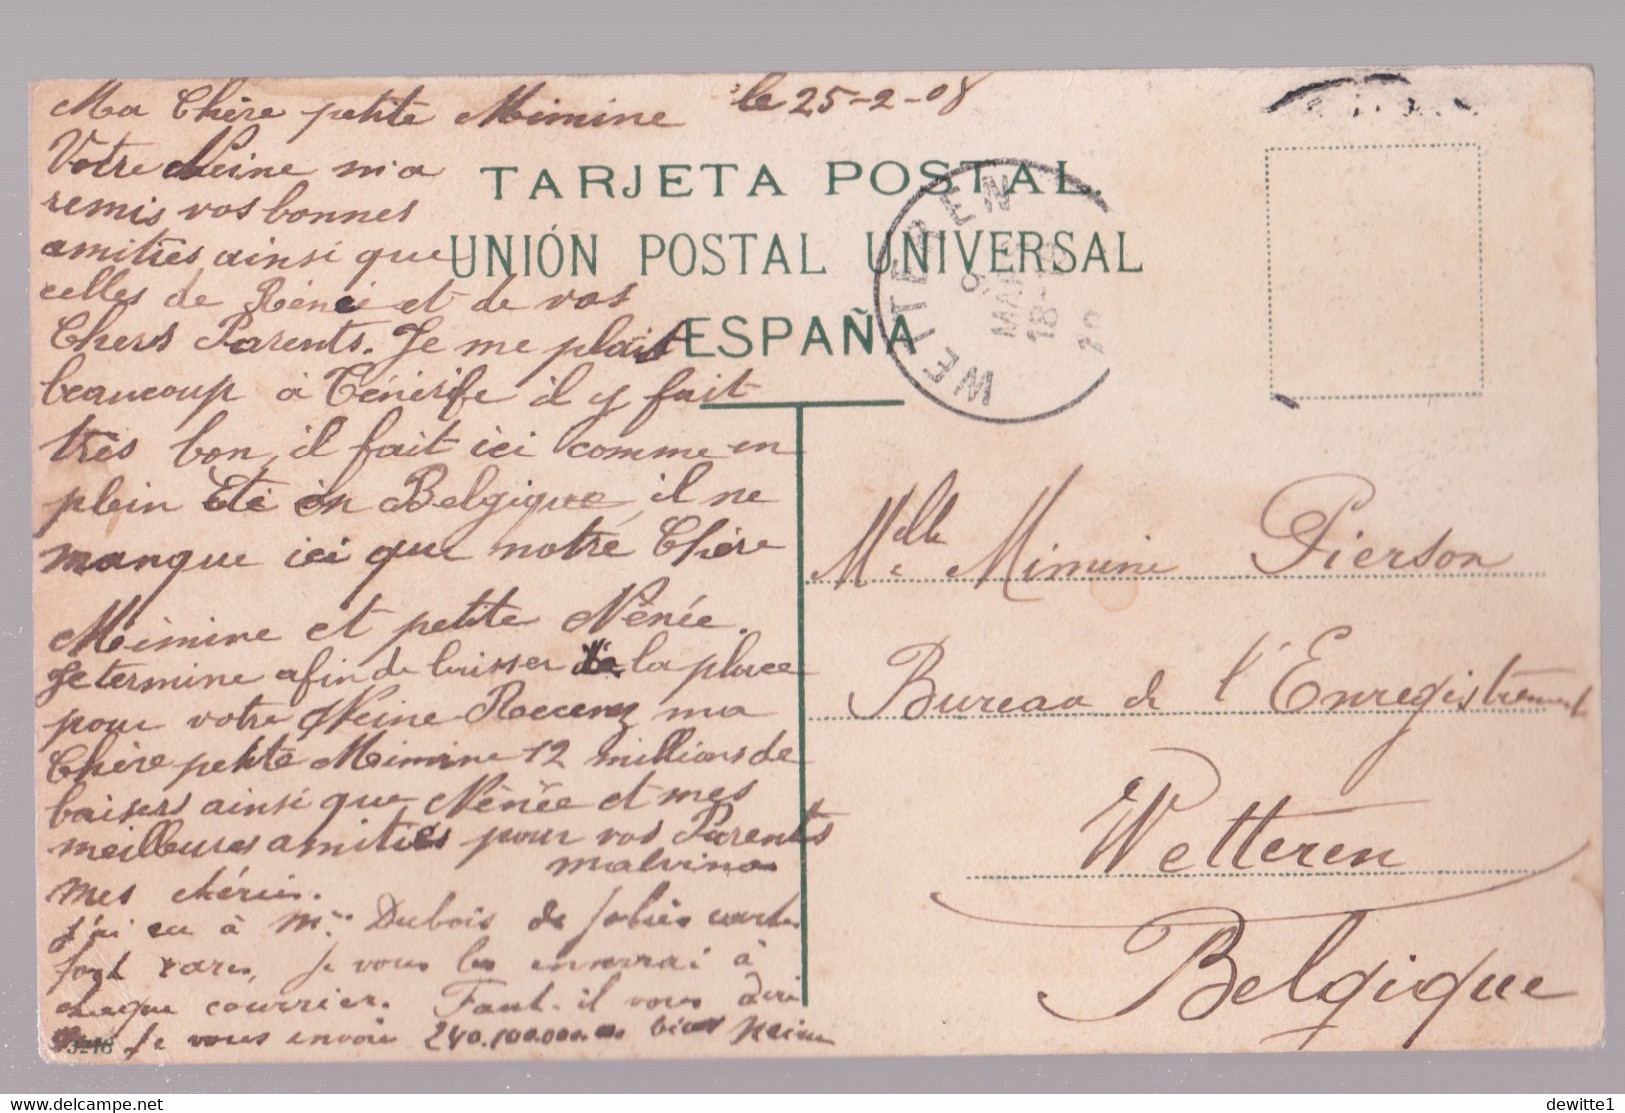 Ma Chère petite Mimine le 25-2-08
Votre Neine m'a
remis vos bonnes
amitiés ainsi que
celles de Rénée et de vos
Chers Parents. Je me plais
beaucoup à Ténérife il y fait
très bon, il fait ici comme en
plein Eté en Belgique, il ne
manque ici que notre Chère
Mimine et petite Nénée.
Je termine afin de laisser la place
pour votre Neine Recevez ma
Chère petite Mimine 12 millions de
baisers ainsi que Nénée et mes
meilleures amitiés pour vos Parents
Malvina
Mes chéries.
j'ai eu à Mme Dubois de jolies cartes
fort rares, Je vous les enverrai à
chaque courrier. Faut-il vous dire
que Je vous envoie 240.100.000.00 Neine
3246
TARJETA POSTAL.
UNIÓN POSTAL UNIVERSAL
ESPAÑA
WETTEREN
9
MAR
18-
19
Melle Mimine Pierson
Bureau de l'Enregistrement
Wetteren
Belgique
www.delcampe.net
dewitte1